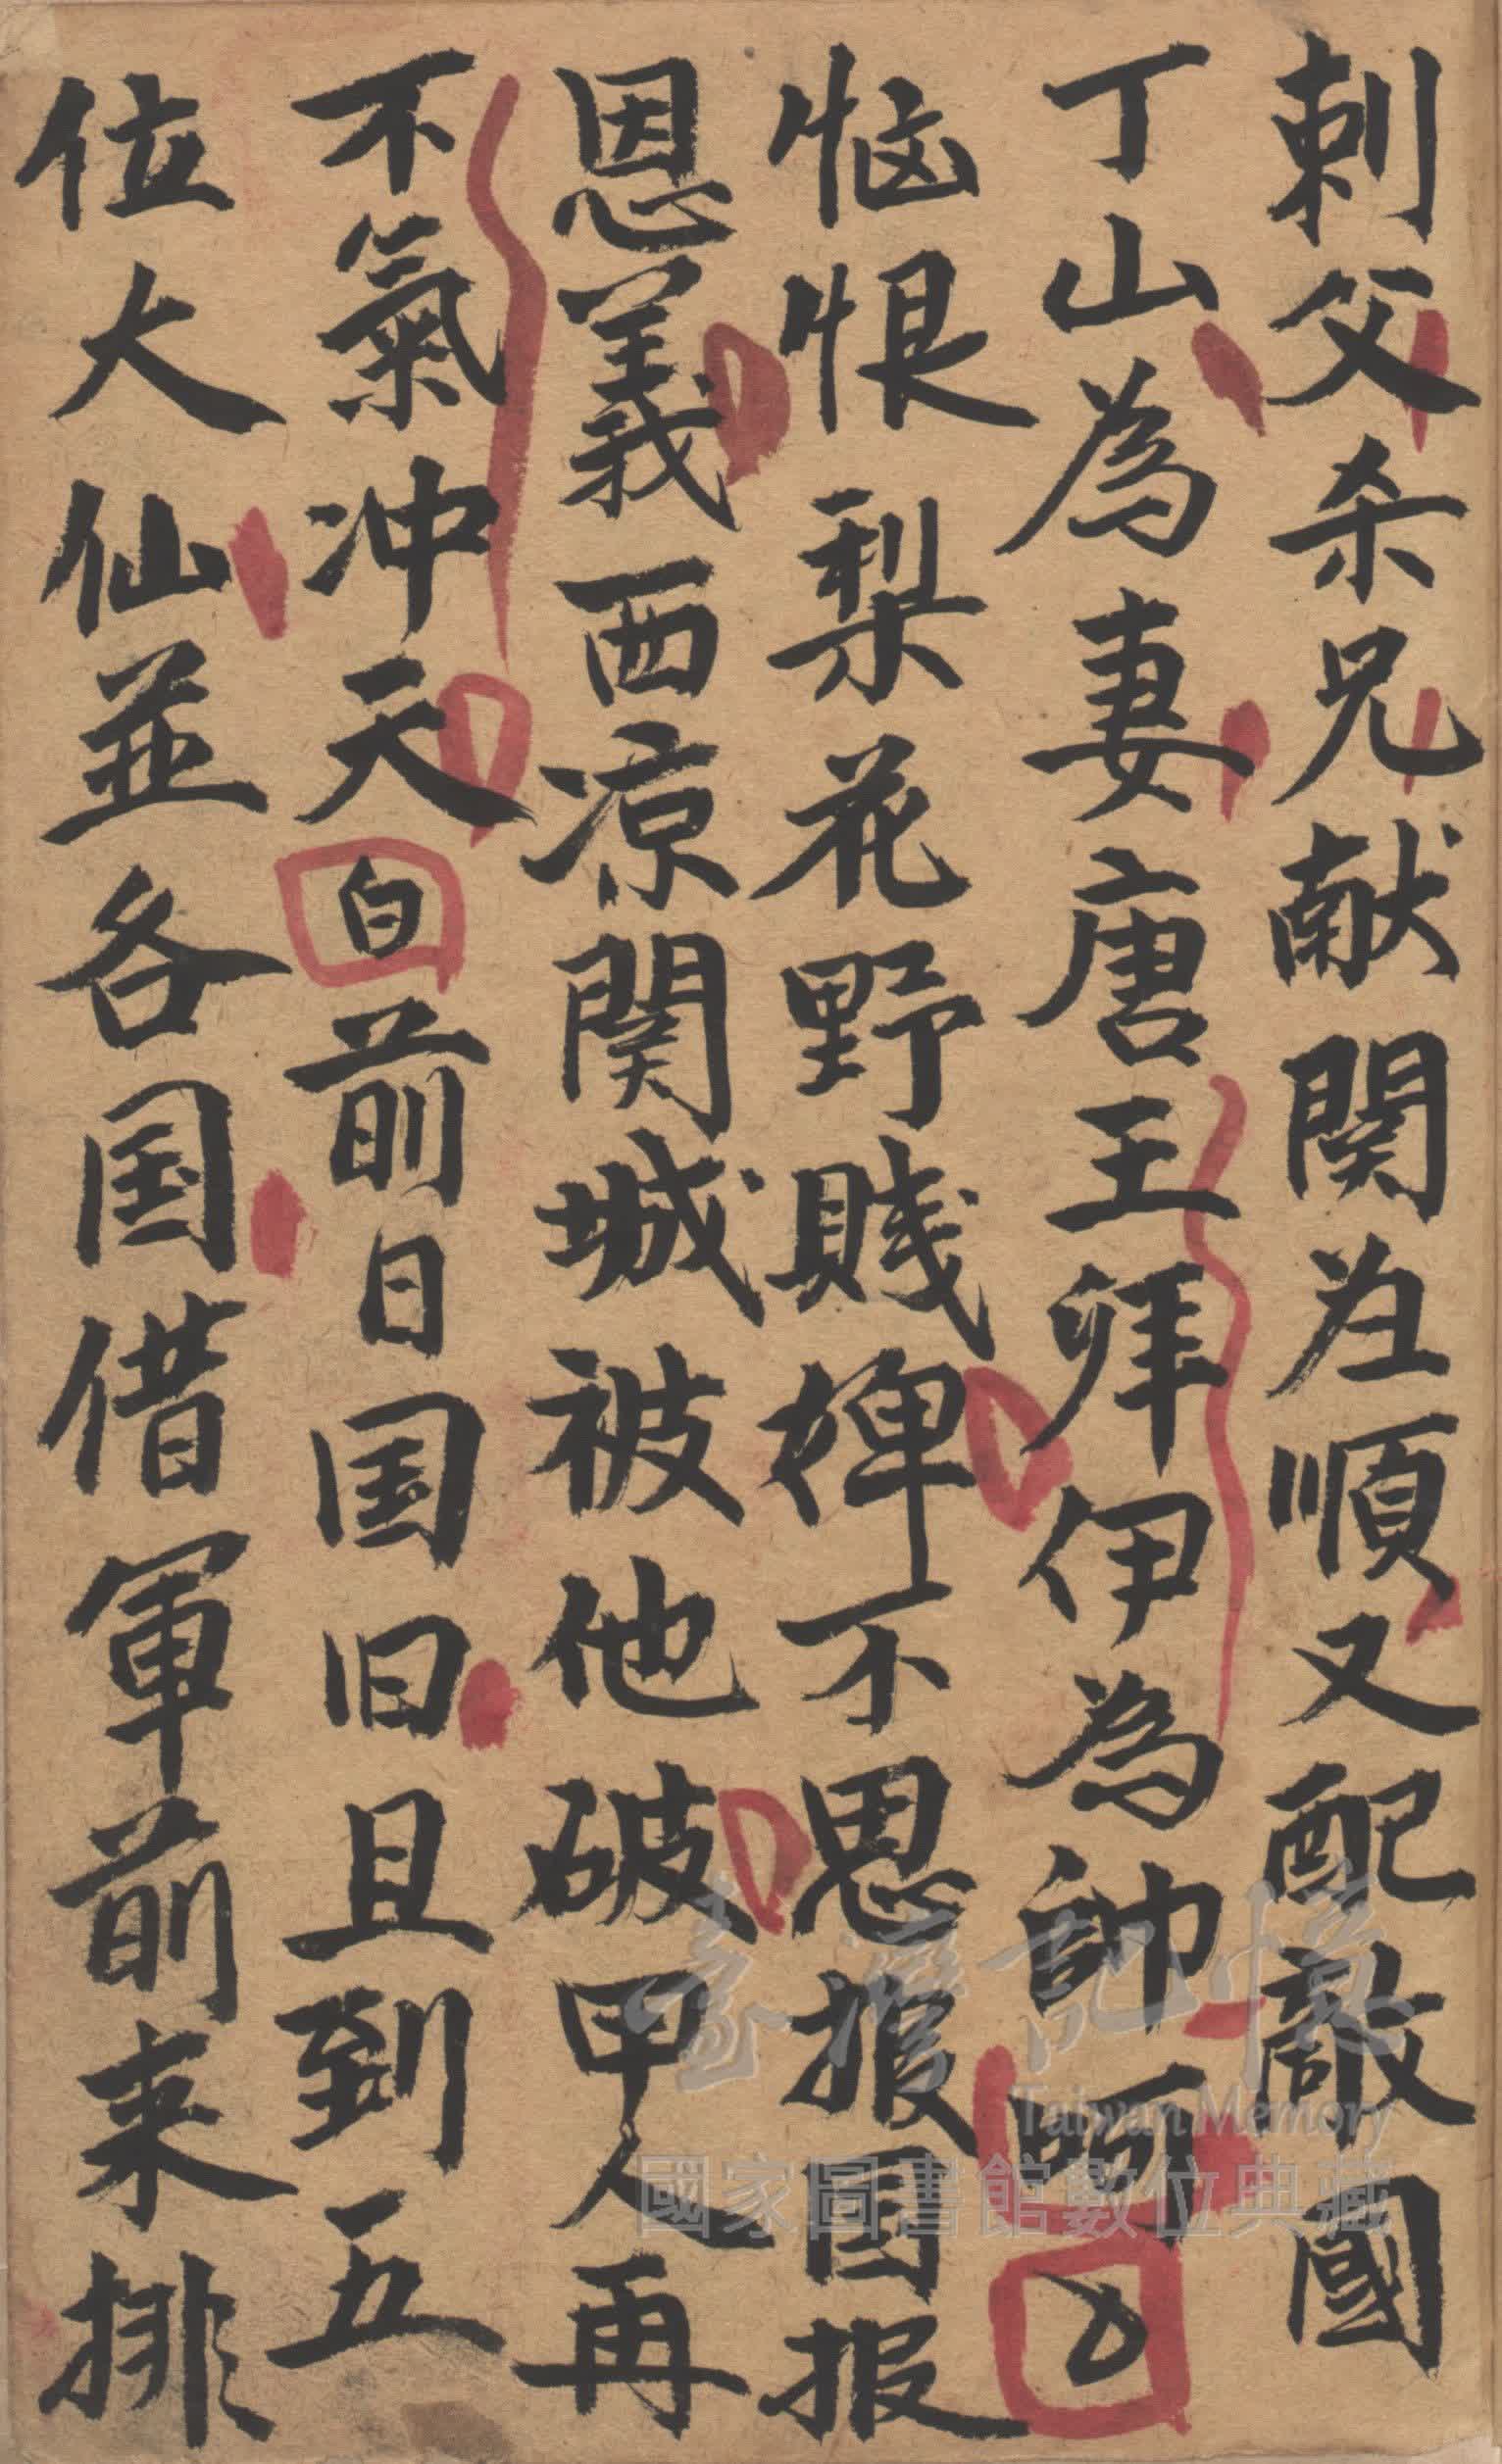 刺父杀兄献関为順又配敵國
丁山為妻唐王拜伊為帥啊
恼恨梨花野賤婢不思报国报
恩義西凉関城被他破甲人再
不氣冲天白前日国旧且到五
位大仙並各国借軍前来排
臺灣記憶
Taiwan Memory
國家圖書館數位典藏